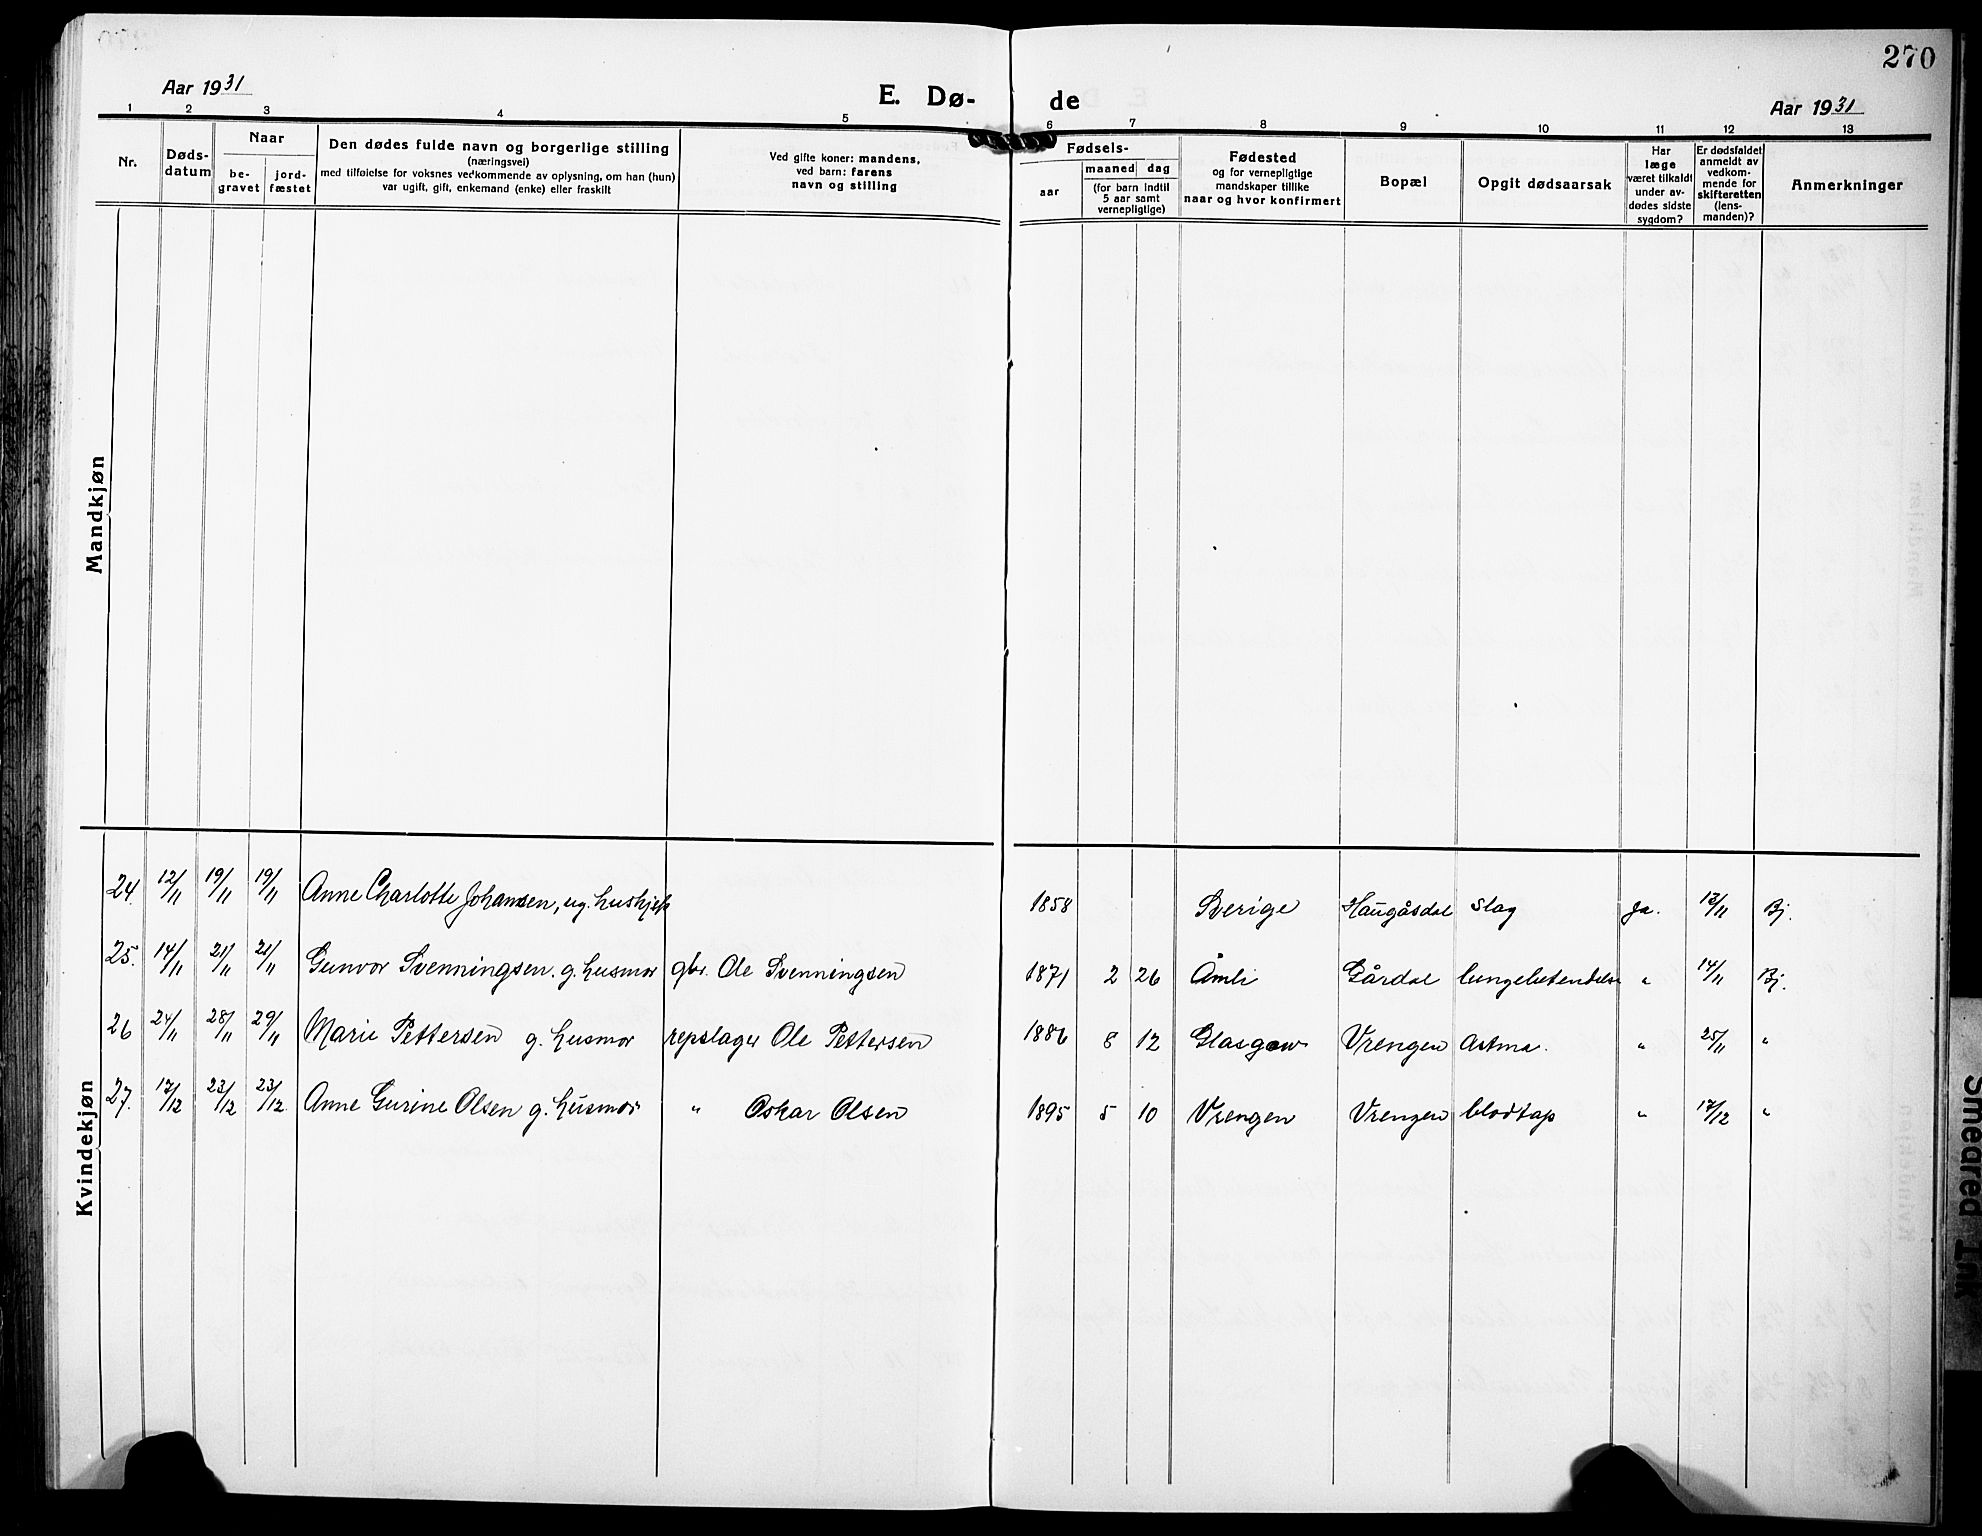 270
Aar 1931
E. Dø-
de
Aar 1931
1 2 3 4 5 6 7 8 9 10 11 12 13
Nr.
Døds-
datum
Naar
be-
gravet
jord-
fæstet
Den dødes fulde navn og borgerlige stilling
(næringsvei)
med tilføielse for voksnes vedkommende av oplysning, om han (hun)
var ugift, gift, enkemand (enke) eller fraskilt
Ved gifte koner: mandens,
ved barn: farens
navn og stilling
Fødsels-
aar
maaned dag
(for barn indtil
5 aar samt
vernepligtige)
Fødested
og for vernepligtige
mandskaper tillike
naar og hvor konfirmert
Bopæl
Opgit dødsaarsak
Har
læge
været tilkaldt
under av-
dødes sidste
sygdom?
Er dødsfaldet
anmeldt av
vedkom-
mende for
skifteretten
(lens-
manden)?
Anmerkninger
Mandkjøn
Kvindekjøn
24. 12/11 19/11 19/11 Anne Charlotte Johansen, ug. hushjelp 1858 Sverige Haugåsdal Slag ja. 12/11 Bj.
25. 14/11 21/11 21/11 Gunvor Svenningsen. g. husmor gbr. Ole Svenningsen 1871 2 26 Åmli Gårdal lungebetendelse " 14/11 Bj.
26 24/11 28/11 29/11 Marie Pettersen g. husmor repslager Ole Pettersen 1886 8 12 Glasgow Vrengen Astma. " 25/11 "
27. 17/12 23/12 23/12 Anne Gurine Olsen g. husmor " Oskar Olsen 1895 5 10 Vrengen Vrengen blodtap " 17/12 "
Smeared Ink